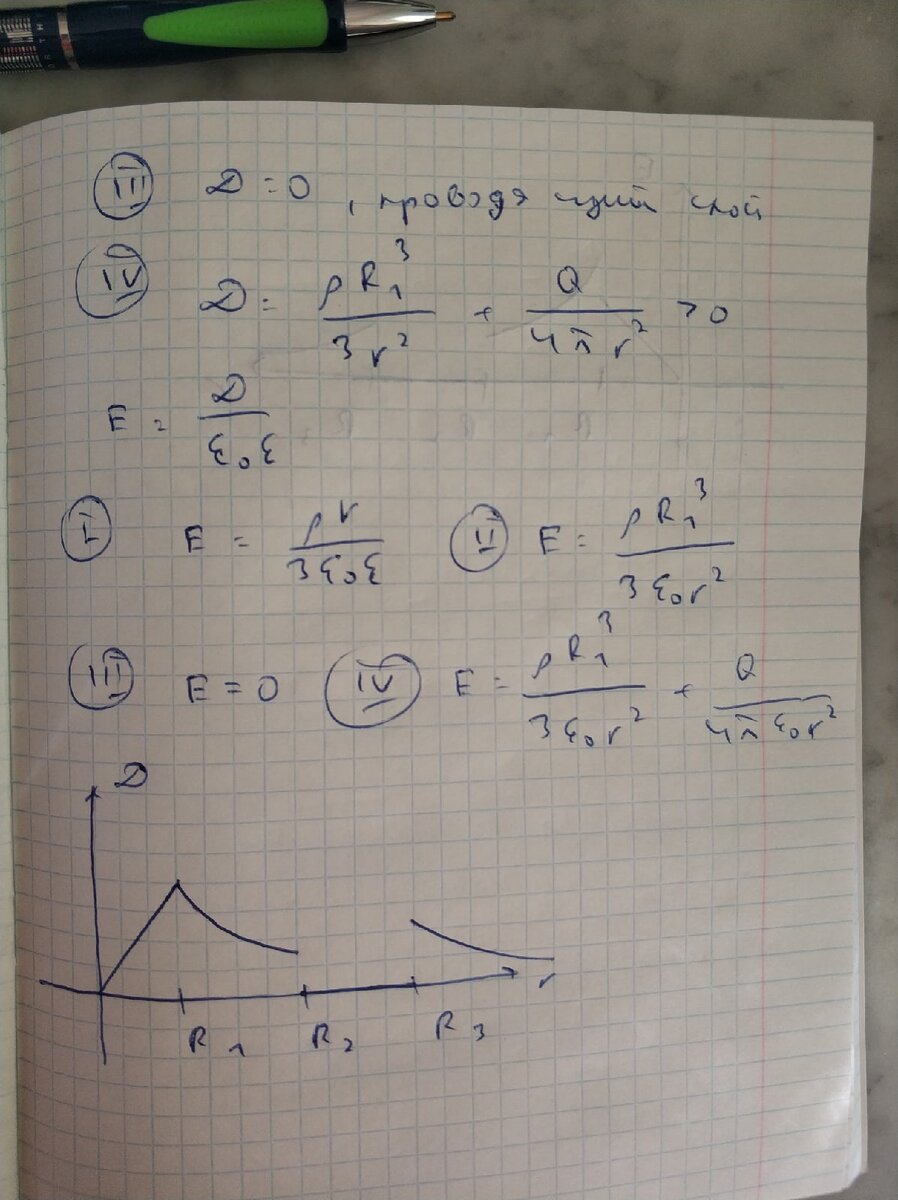 III D = 0, проводящий слой
IV D = ρR₁³/3r² + Q/4πr² > 0
E = D/ε₀ε
I E = ρr/3ε₀ε II E = ρR₁³/3ε₀r²
III E = 0 IV E = ρR₁³/3ε₀r² + Q/4πε₀r²
D
r
R₁ R₂ R₃